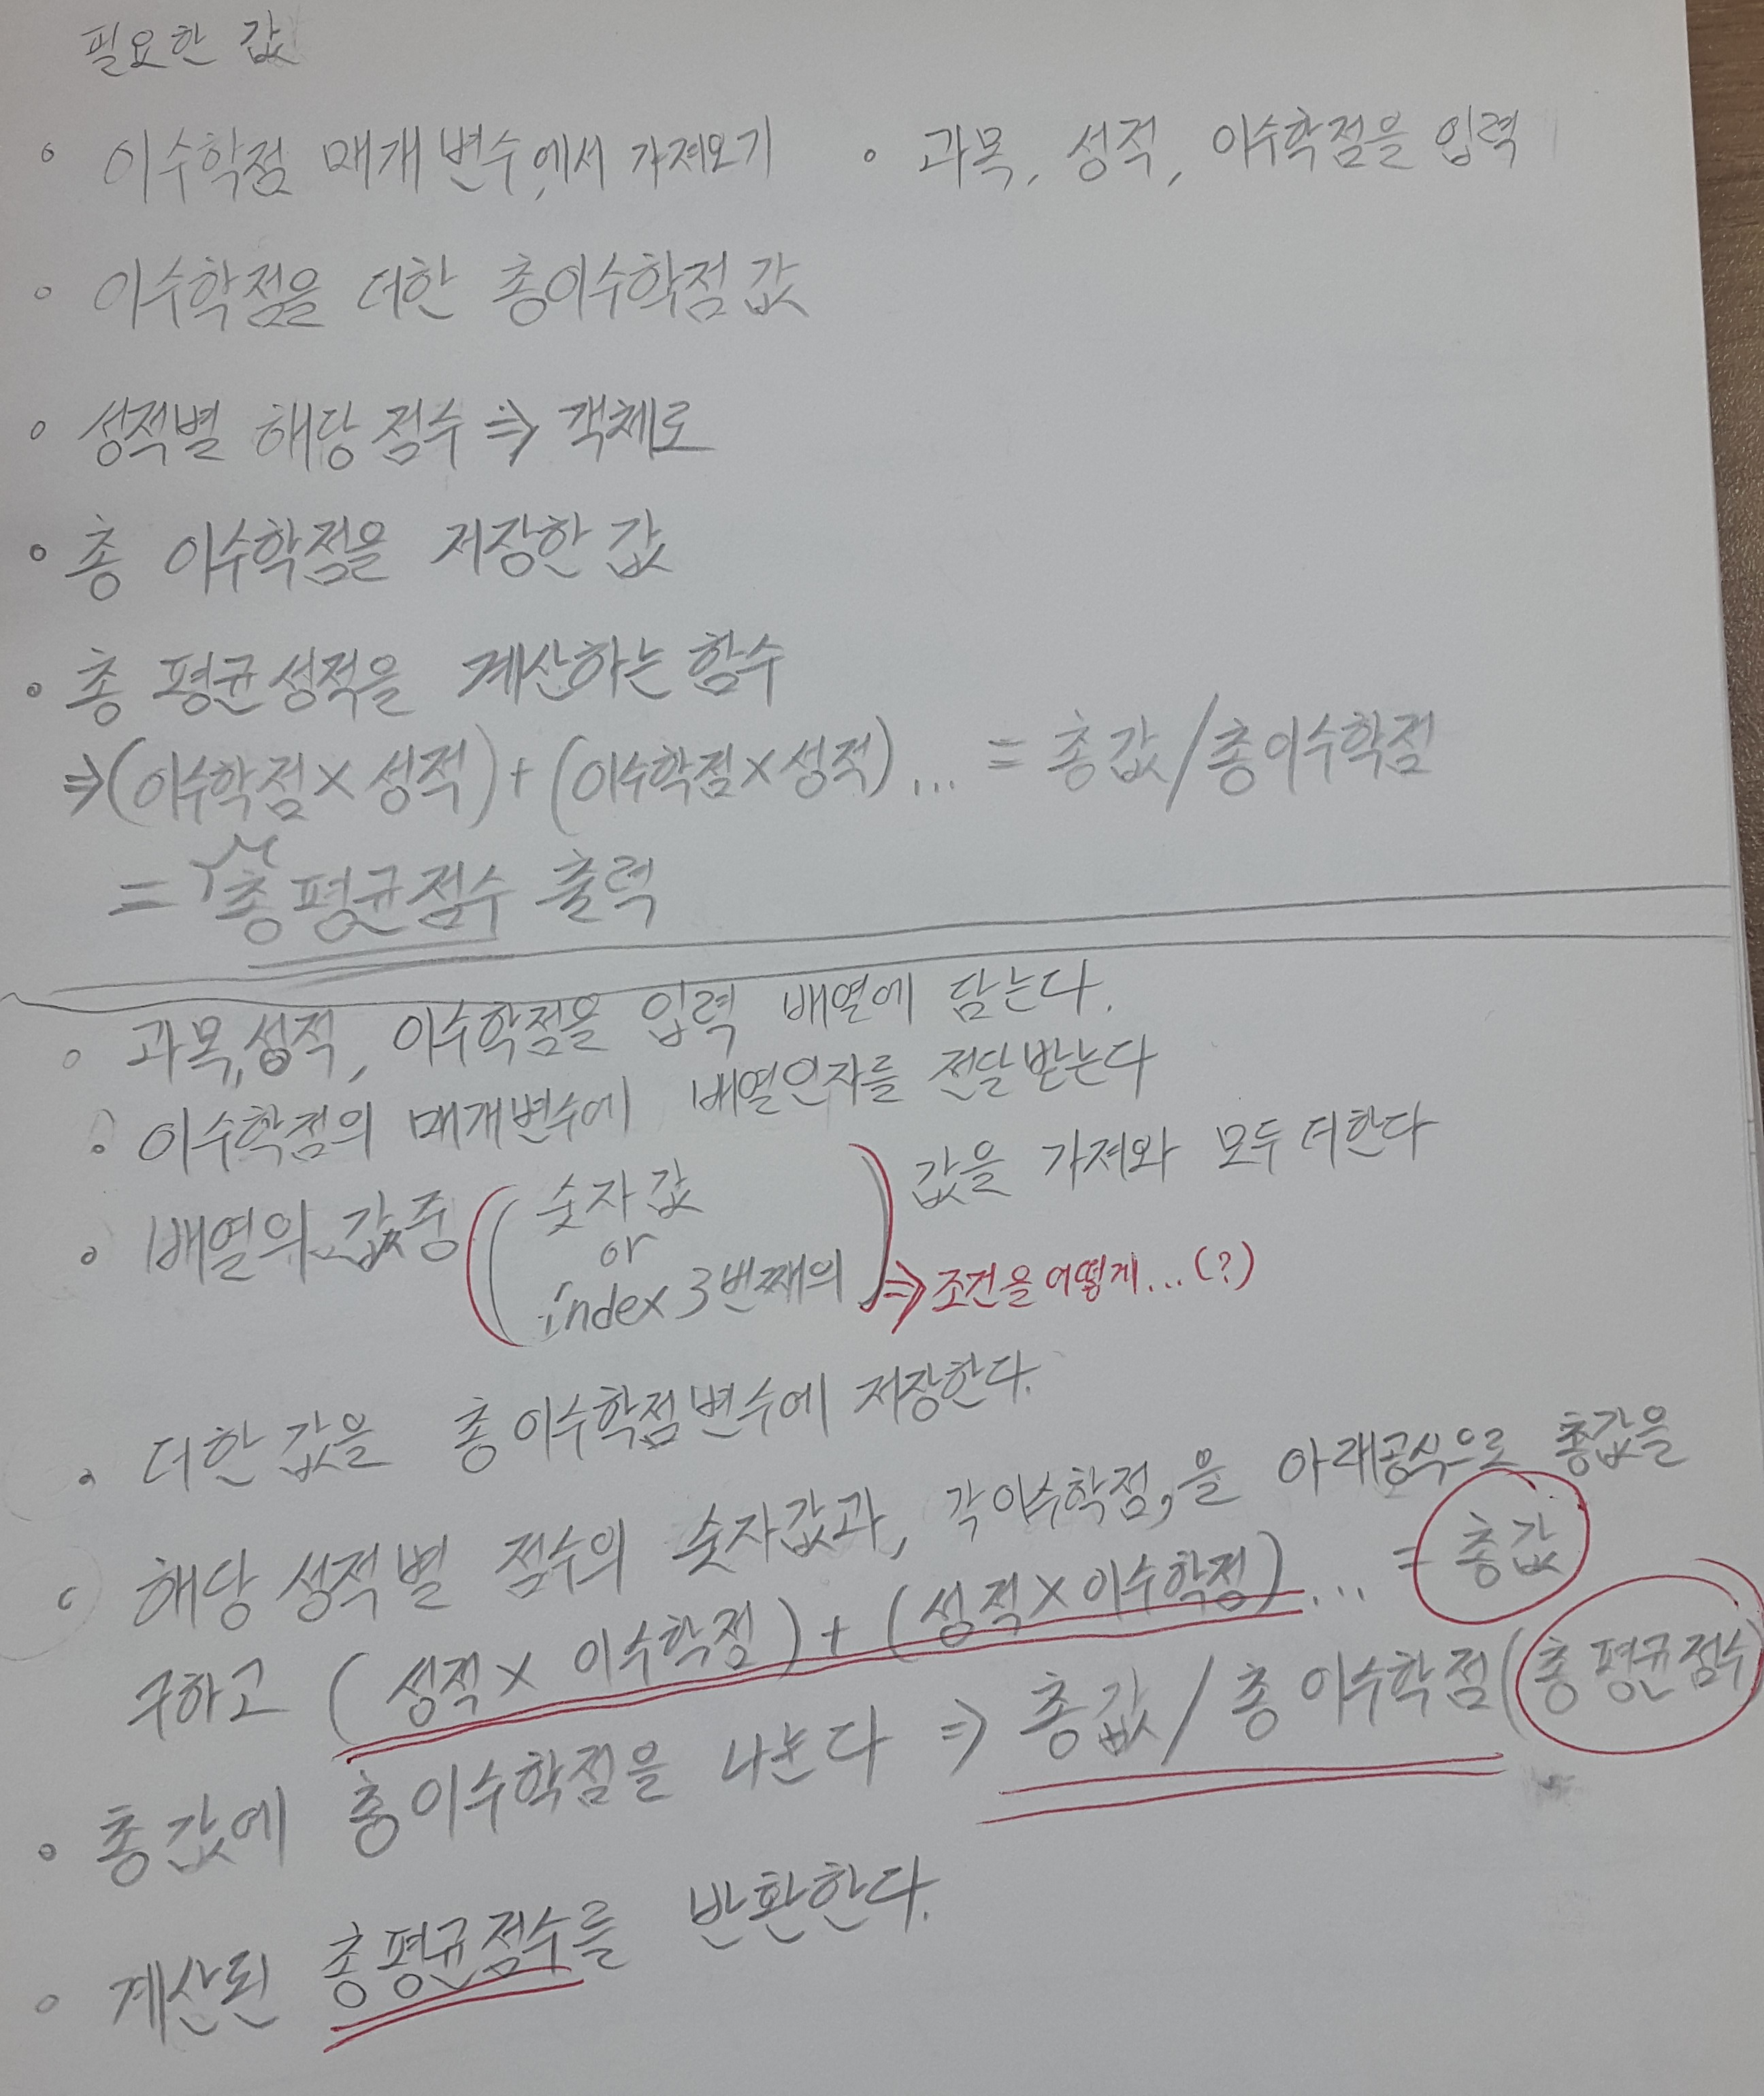 필요한 값
◦ 이수학점 매개변수에서 가져오기 ◦ 과목, 성적, 이수학점을 입력
◦ 이수학점을 더한 총이수학점 값
◦ 성적별 해당 점수 ⇒ 객체로
◦ 총 이수학점을 저장한 값
◦ 총 평균성적을 계산하는 함수
⇒(이수학점×성적)+(이수학점×성적)... = 총값/총이수학점
= 총평균점수 출력
◦ 과목, 성적, 이수학점을 입력 배열에 담는다.
◦ 이수학점의 매개변수에 배열인자를 전달받는다
◦ 배열의 값중 (숫자값 or index 3번째의) 값을 가져와 모두 더한다
⇒ 조건을 어떻게...(?)
◦ 더한 값을 총이수학점변수에 저장한다.
◦ 해당 성적별 점수의 숫자값과, 각이수학점,을 아래공식으로 총값을
구하고 (성적× 이수학점)+(성적×이수학점)... = 총값
◦ 총값에 총이수학점을 나눈다 ⇒ 총값/총이수학점(총평균점수)
◦ 계산된 총평균점수를 반환한다.